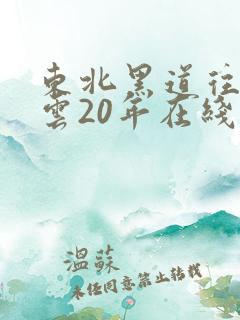 東北黑道往
雲20年在綫
溫蘇
未經同意禁止轉載